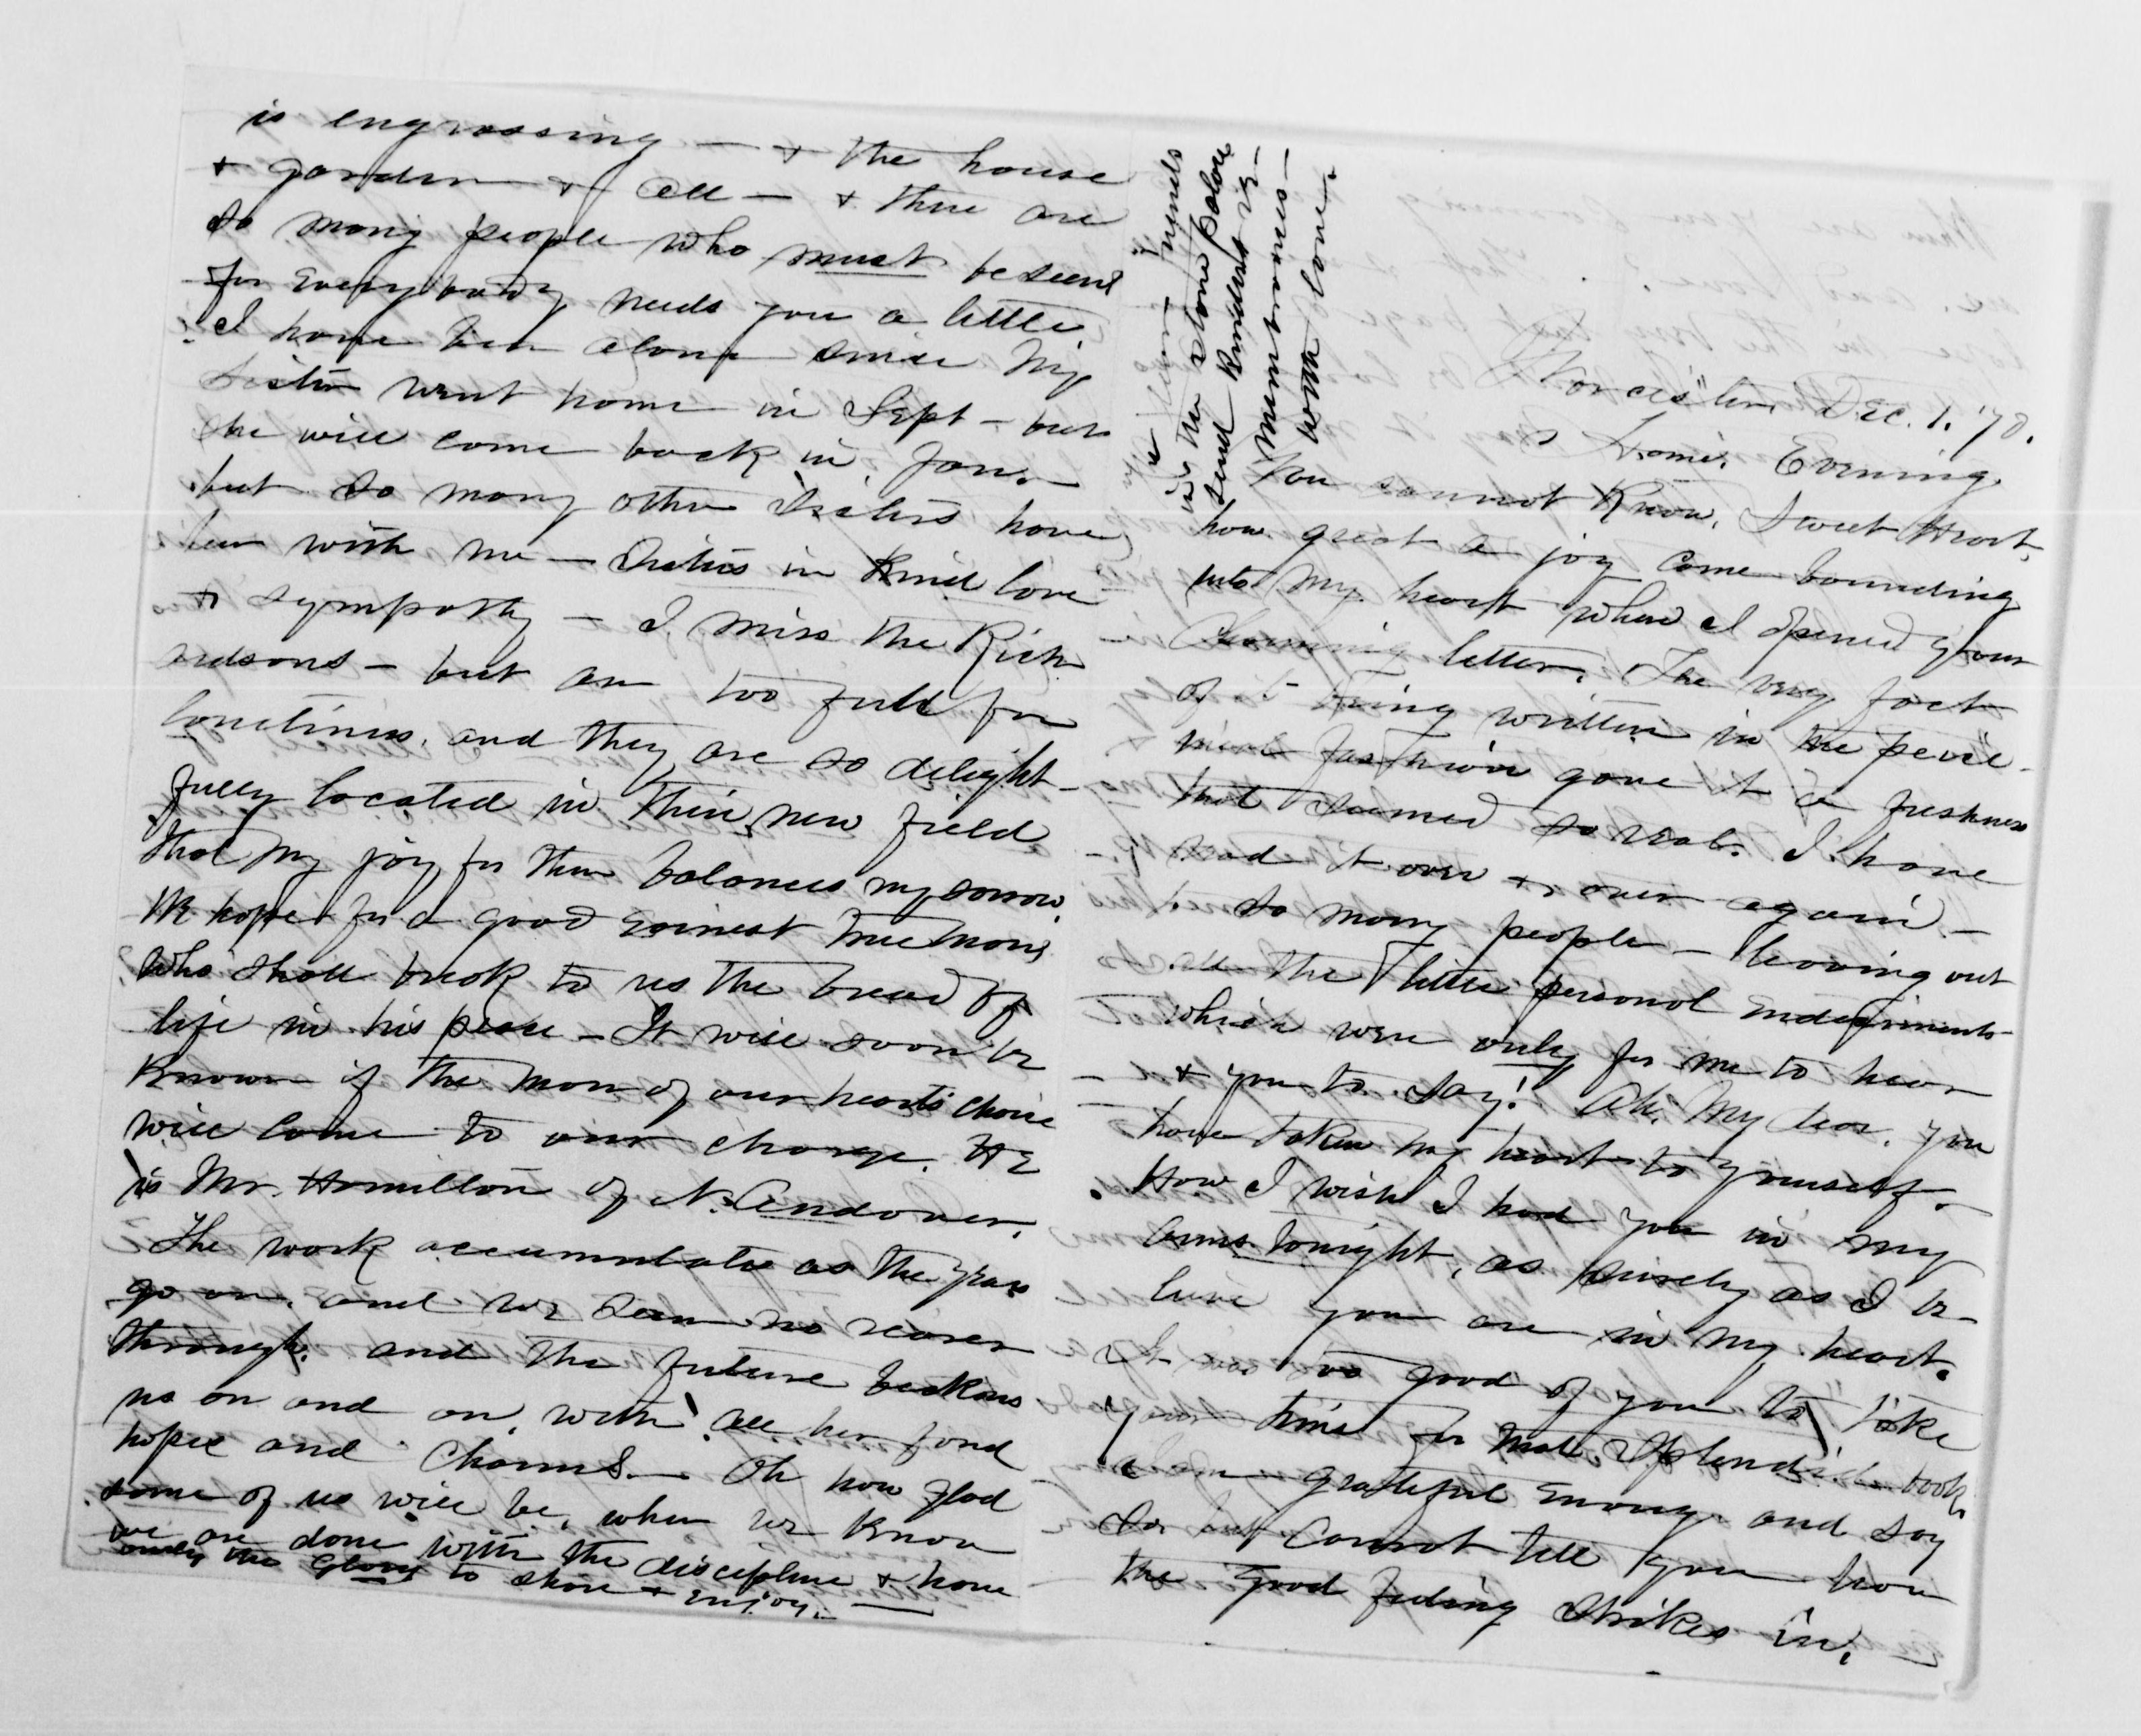 Worcester, Dec. 1. '70.
Home. Evening.
You cannot Know, Sweet Heart,
how great a joy came bounding
into my heart when I opened your
charming letter. The very fact
of it being written in the
fashion gave it a freshness
that seemed so real. I have
read it over & over again —
to so many people — leaving out
all the little personal endearments
which were only for me to hear
& you to say! Ah, My dear, you
have taken my heart to yourself.
How I wish I had you in my
arms tonight, as surely as I be-
lieve you are in my heart.
It was so good of you to take
your time for that splendid book
I am grateful enough and say
so but cannot tell you how
the good feeling strikes in.
is engrossing — & the house
& garden & all — & there are
so many people who must be seen
for everybody needs you a little.
I have been alone since My
Sister went home in Sept — but
she will come back in Jan.
but so many other Sisters have
been with me — Sisters in Kind love
& sympathy — I miss the Rich-
ardsons — but am too full for
loneliness, and they are so delight-
fully located in their new field
that my joy for them balances my sorrow.
We hope for a good earnest true man
who shall break to us the bread of
life in his place — It will soon be
Known if the man of our hearts choice
will come to our charge. He
is Mr. Hamilton of N. Andover.
The work accumulates as the years
go on, and we seem no nearer
through, and the future beckons
us on and on, with all her fond
hopes and charms. Oh how glad
some of us will be, when we Know
we are done with the discipline & have
only the Glory to share & enjoy. —
friends
send kindest re-
membrances —
with love.